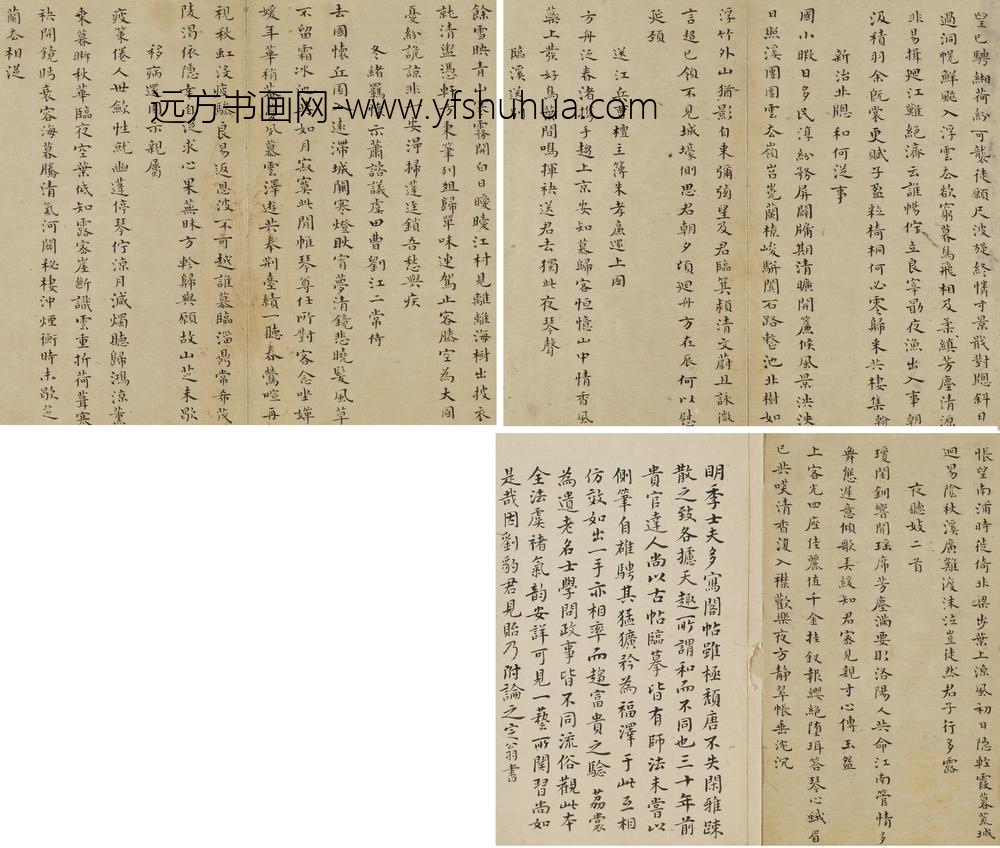 望已騁緗荷紛可襲徒願尺波旋終憐寸景戢對牕斜日
過洞幌鮮飈入浮雲去欲窮暮鳥飛相及柔縝芳塵清源
非易揖廻江難絕濟云誰暢佇立良宰勗夜漁出入事朝
汲積羽余既裳更賦子盈粒椅桐何必零歸来共棲集
新治北牕和何從事
國小暇日多民淳紛務屏闢牖期清曠開簾候風景泱泱
日照溪團團雲去嶺岧嶤蘭橑峻駢闐石路整池北樹如
浮竹外山猶影自来彌弦星及君臨箕潁清文蔚且詠微
言超已領不見城壕側思君朝夕頃廻舟方在辰何以慰
延頸
送江兵曹檀主簿朱孝廉還上國
方舟泛春渚攜手趨上京安知慕歸客恒憶山中情香風
蘂上發好鳥葉間鳴揮袂送君去獨此夜琴聲
臨溪送
餘雪映青 霧開白日曖曖江村見離離海樹出披衣
就清盥憑軒 秉筆列俎歸單味連駕止容膝空為大國
憂紛詭諒非一安得掃蓬逕鎖吾愁與疾
冬緒羈懷示蕭諮議虞田曹劉江二常侍
去國懷丘園 遠滯城闕寒燈耿宵夢清鏡悲曉髮風草
不留霜冰池 如月寂寞此閒帷琴尊任所對客念坐嬋
媛年華稍 夙慕雲澤遊共奉荊臺績一聽春鶯喧再
視秋虹沒疲驂良易返恩波不可越誰慕臨淄鼎常希茂
陵渴依隱幸自從求心果蕪昧方軫歸與願故山芝未歇
移病還園示親屬
疲策倦人世斂性就幽蓬停琴佇涼月滅燭聽歸鴻涼薰
乘暮晣秋華臨夜空葉低知露密崖斷識雲重折荷葺寒
袂開鏡眄衰容海暮騰清氣河關秘棲沖煙衡時未歇芝
蘭去相從
远方书画网-www.yfshuhua.com
悵望南浦時徙倚北梁步葉上涼風初日隱輕霞暮荒城
迴易陰秋溪廣難渡沫泣豈徒然君子行多露
夜聽妓二首
瓊閨釧響聞瑤席芳塵滿要取洛陽人共命江南管情多
舞態遲意傾歌弄緩知君密見親寸心傳玉盌
上客光四座佳麗值千金挂釵報纓絕墮珥答琴心蛾眉
已共咲清香復入襟歡樂夜方靜翠帳垂沈沉
明季士夫多寫閣帖雖極頹唐不失閑雅疎
散之致各攄天趣所謂和而不同也三十年前
貴官達人尚以古帖臨摹皆有師法未嘗以
側筆自雄騁其猛獷矜為福澤于此互相
仿效如出一手亦相率而趨富貴之驗荔裳
為遺老名士學問政事皆不同流俗觀此本
全法虞褚氣韵安詳可見一藝所関習尚如
是哉因劉韵君見貽乃附論之定翁書